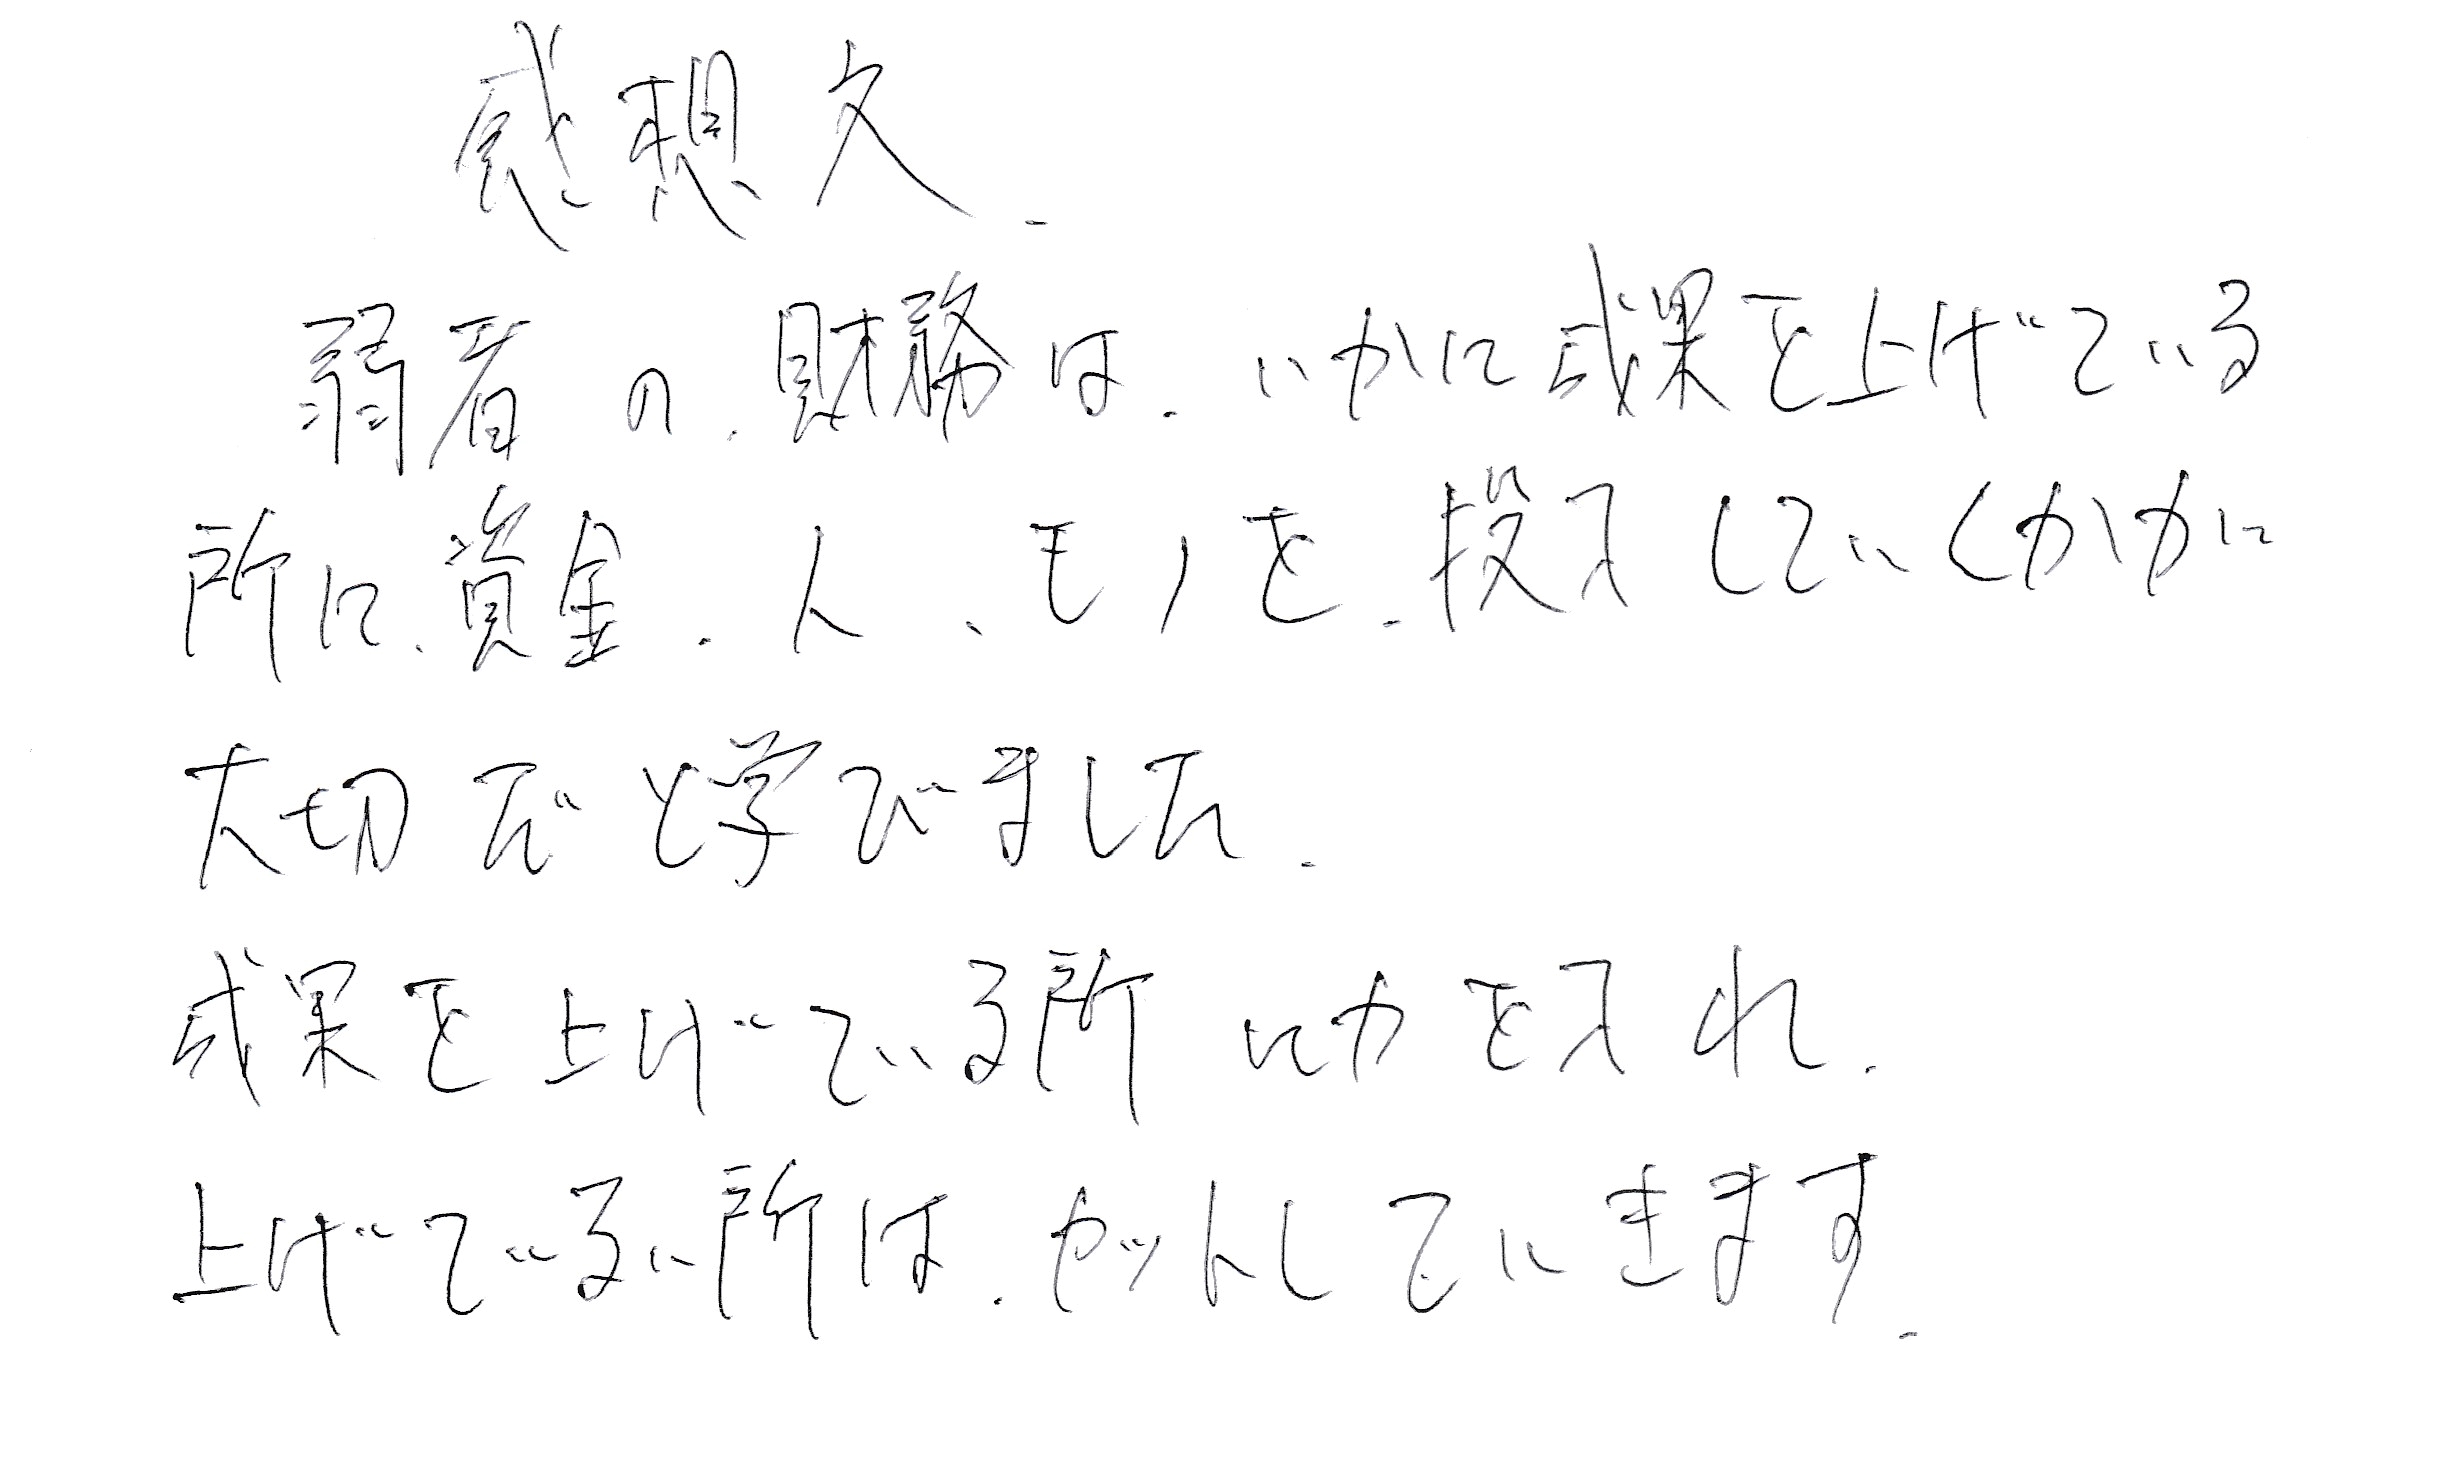 感想文.
弱者の.財務は.いかに成果を上げている
所に.資金.人、モノを.投入していくかかに
大切でと学びました.
成果を上げている所に力を入れ.
上げているい所は.カットしていきます.